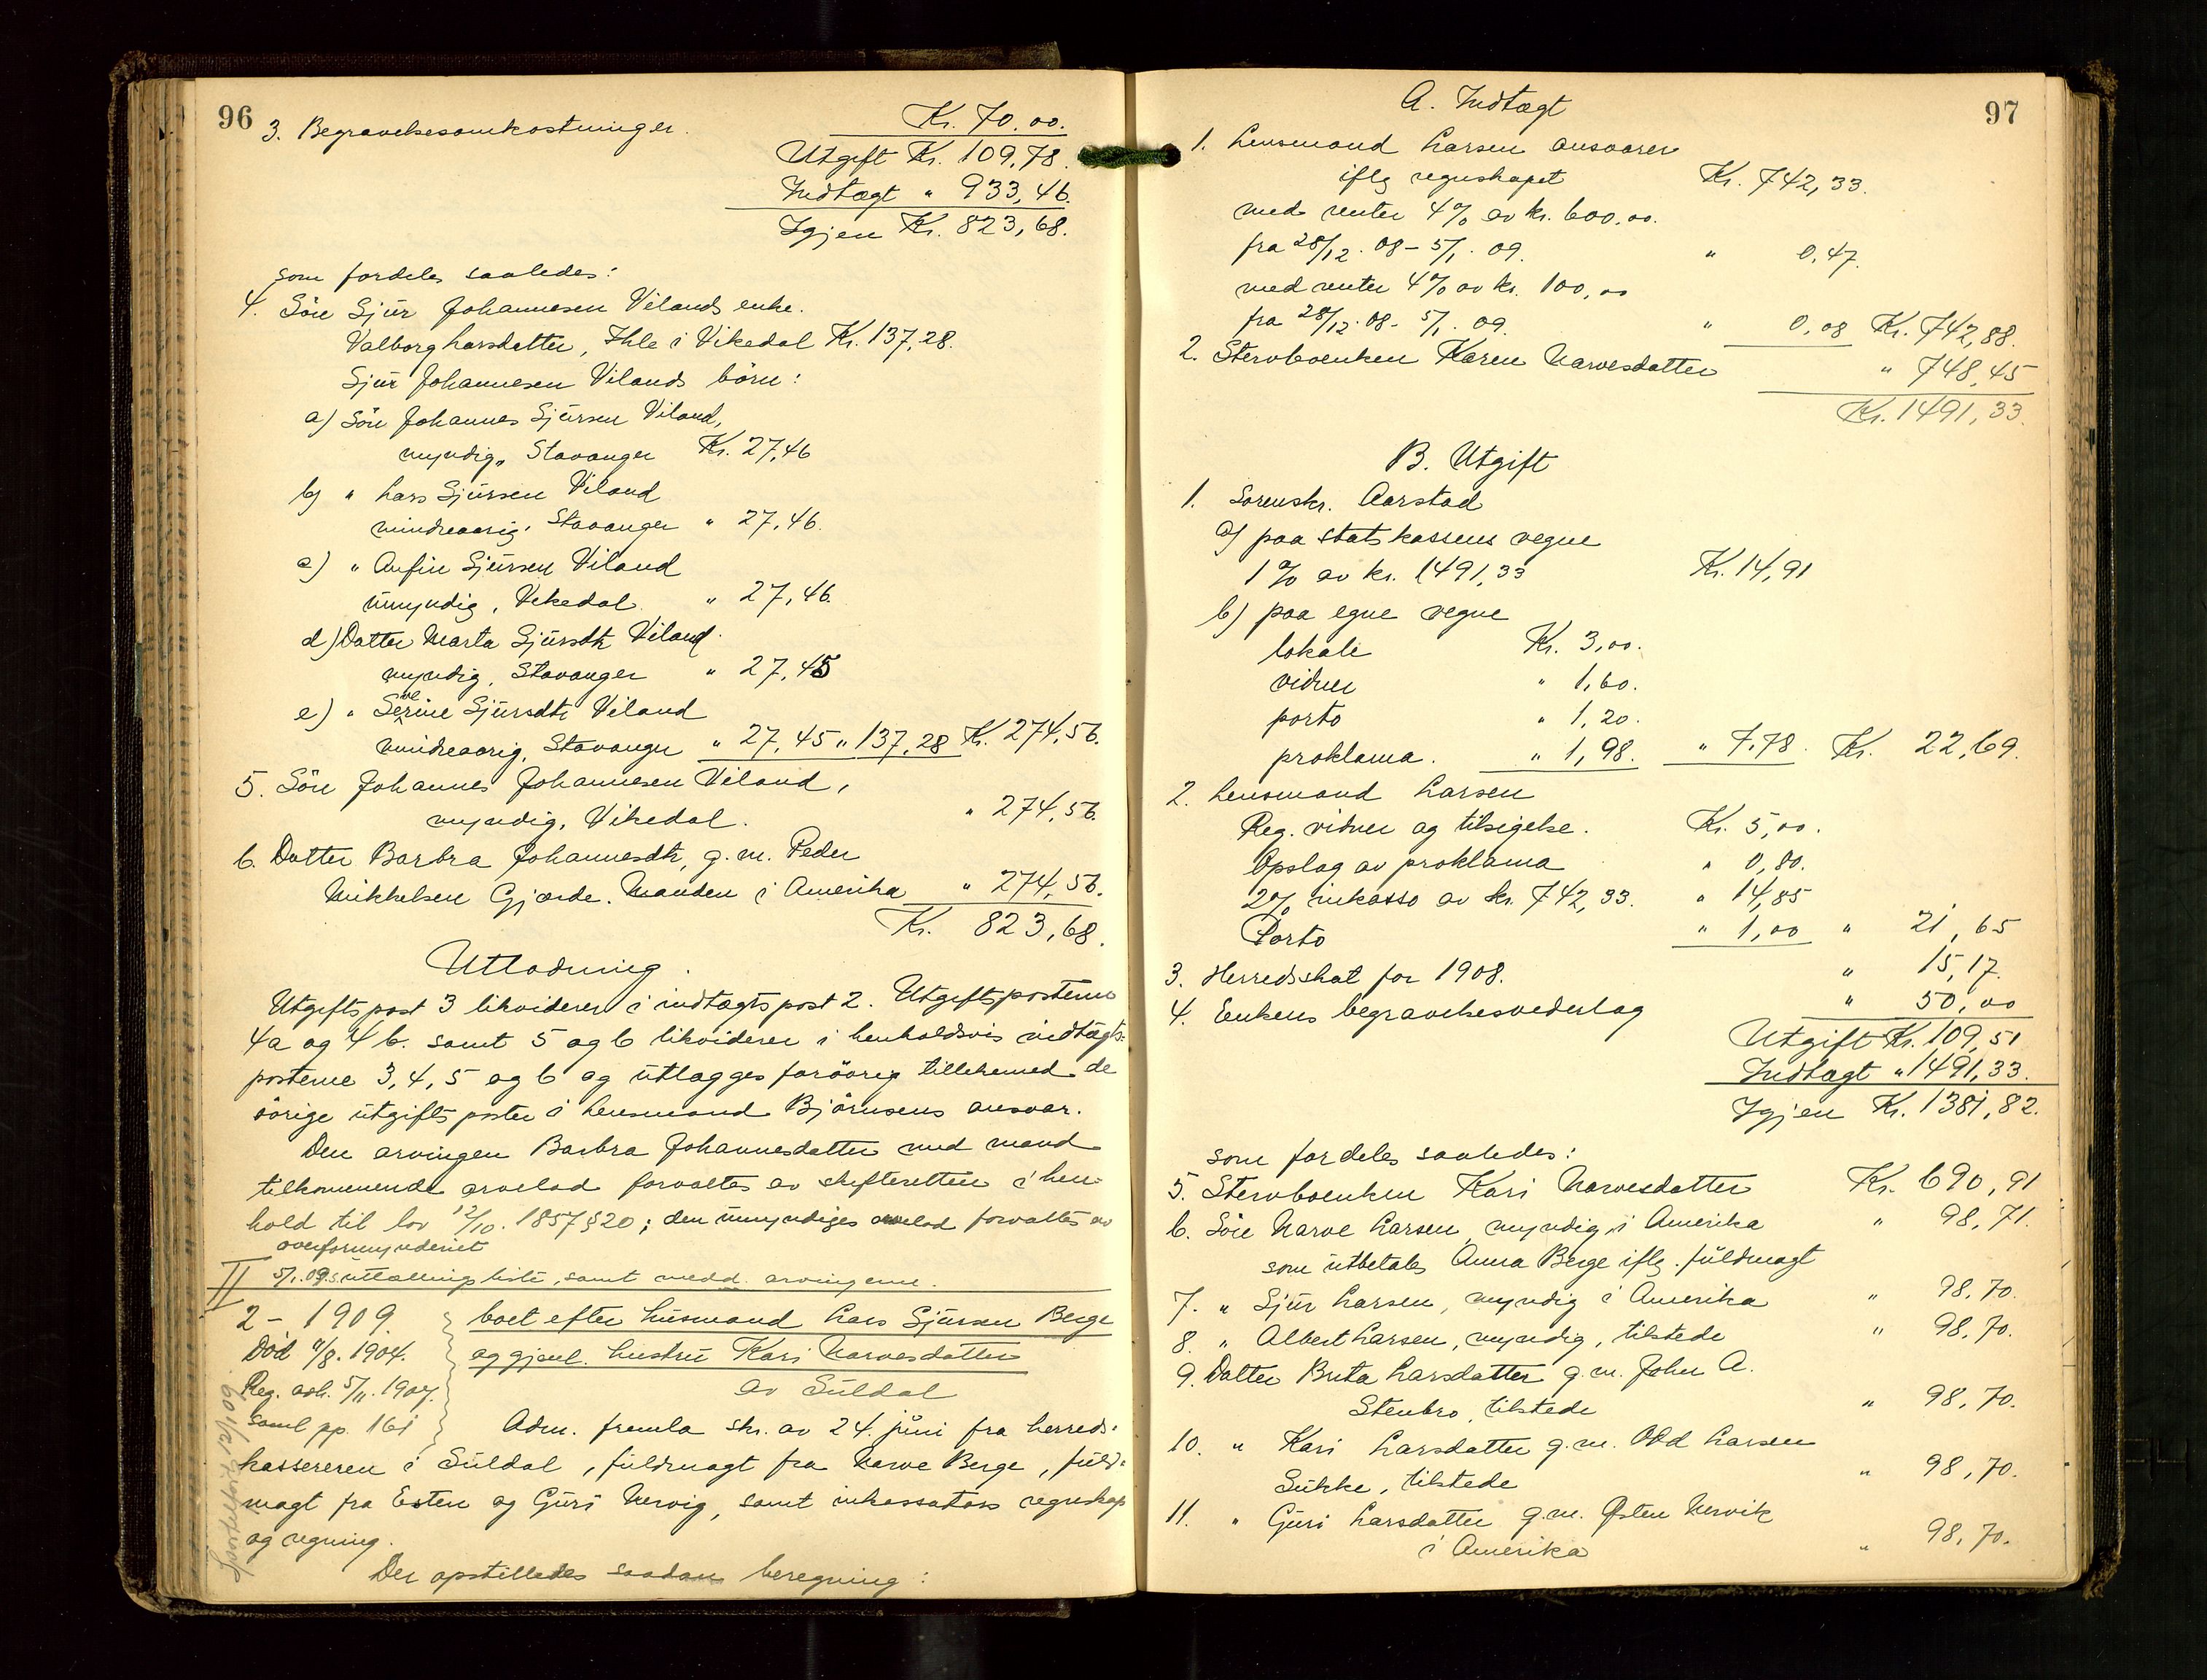 96
3. Begravelsesomkostninger. Kr. 70.00.
Utgift Kr. 109,78.
Indtægt " 933,46.
Igjen Kr. 823,68.
som fordeles saaledes:
4. Sön Sjur Johannesen Vilands enke.
Valborg Larsdatter, Ihle i Vikedal Kr. 137,28.
Sjur Johannesen Vilands börn:
a) Sön Johannes Sjursen Viland,
myndig, Stavanger Kr. 27,46
b) " Lars Sjursen Viland
mindreaarig, Stavanger " 27,46.
c) " Anfin Sjursen Viland
umyndig, Vikedal " 27,46.
d) Datter Marta Sjursdtr Viland.
myndig, Stavanger " 27,45
e) " Serine Sjursdtr Viland
mindreaarig, Stavanger " 27,45 " 137,28 Kr. 274,56.
5. Sön Johannes Johannesen Viland,
myndig, Vikedal. " 274,56.
6. Datter Barbra Johannesdtr, g.m. Peder
Mikkelsen Gjærde. Manden i Amerika " 274,56.
Kr. 823,68.
Utlodning.
Utgiftspost 3 likviderer i indtægtspost 2. Utgiftsposterne
4a og 4b. samt 5 og 6 likviderer i henholdsvis indtægts-
posterne 3, 4, 5 og 6 og utlægges forövrig tillikemed de
övrige utgiftsposter i lensmand Björnsens ansvar.
Den arvingen Barbra Johannesdatter med mand
tilkommende arvelod forvaltes av skifteretten i hen-
hold til lov 12/10. 1857 § 20; den umyndiges arvelod forvaltes av
overformynderiet
5/1.09. utlodningsliste, samt medd. arvingerne.
2 - 1909 boet efter husmand Lars Sjursen Berge
Död 9/8. 1904. og gjenl. hustru Kari Narvesdatter
Reg. avh. 5/11. 1907. av Suldal
Saml pp. 161 Adm. fremla skr. av 24. juni fra herreds-
kassereren i Suldal, fuldmagt fra Narve Berge, fuld-
magt fra Esten og Guri Nervig, samt inkassators regnskap
og regning.
Der opstilledes saadan beregning:
97
A. Indtægt
1. Lensmand Larsen ansvarer
iflg regnskapet Kr. 742,33.
med renter 4% av kr. 600.00.
fra 28/12. 08 - 5/1. 09. " 0,47.
med renter 4% av kr. 100,00
fra 28/12. 08 - 5/1. 09. " 0,08 Kr. 742,88.
2. Stervboenken Karen Narvesdatter " 748,45
Kr. 1491,33.
B. Utgift
1. Sorenskr. Aarstad
a) paa statskassens vegne
1% av kr. 1491,33 Kr. 14,91
b) paa egne vegne
lokale Kr. 3,00.
vidner " 1,60.
porto " 1,20.
proklama. " 1,98. " 7,78. Kr. 22,69.
2. Lensmand Larsen
Reg. vidner og tilsigelse. Kr. 5,00.
Opslag av proklama " 0,80.
2% inkasso av kr. 742,33. " 14,85
Porto " 1,00 " 21,65
3. Herredsskat for 1908. " 15,17.
4. Enkens begravelsesvederlag " 50,00
Utgift Kr. 109,51
Indtægt " 1491,33.
Igjen Kr. 1381,82.
som fordeles saaledes:
5. Stervboenken Kari Narvesdatter Kr. 690,91
6. Sön Narve Larsen, myndig, i Amerika " 98,71.
som utbetales Anna Berge iflg. fuldmagt
7. " Sjur Larsen, myndig i Amerika " 98,70.
8. " Albert Larsen, myndig, tilstede " 98,70.
9. Datter Brita Larsdatter g.m. John A.
Stenbro, tilstede " 98,70.
10. " Kari Larsdatter g.m. Odd Larsen
Sukke, tilstede " 98,70.
11. " Guri Larsdatter g.m. Østen Nervik
i Amerika " 98,70.